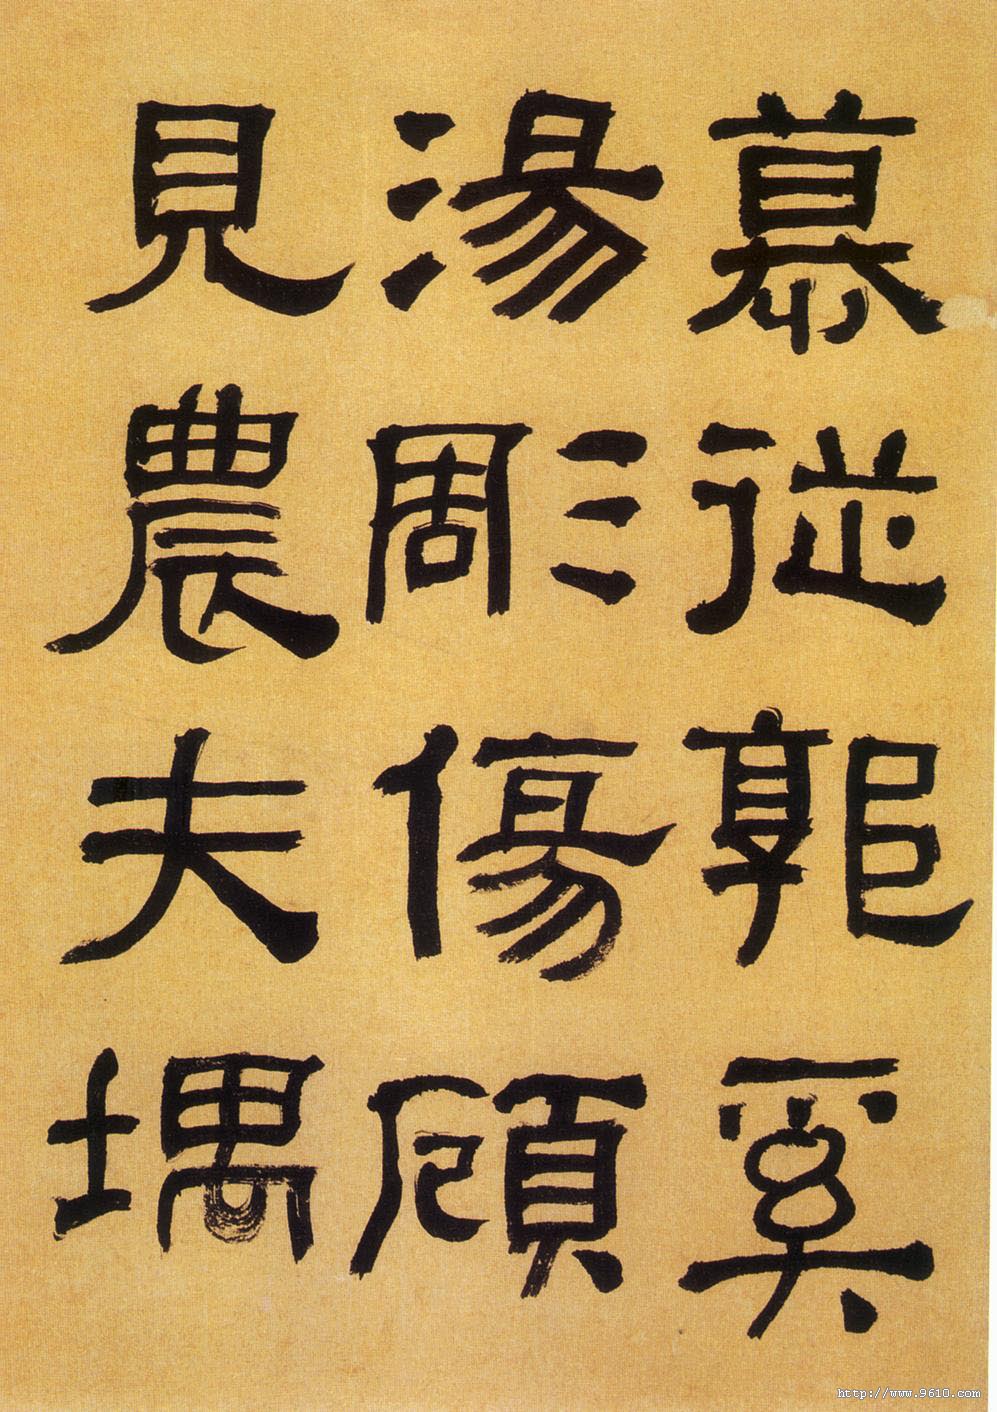 慕從郭奚
湯彫傷頋
見農夫堣
http://www.9610.com